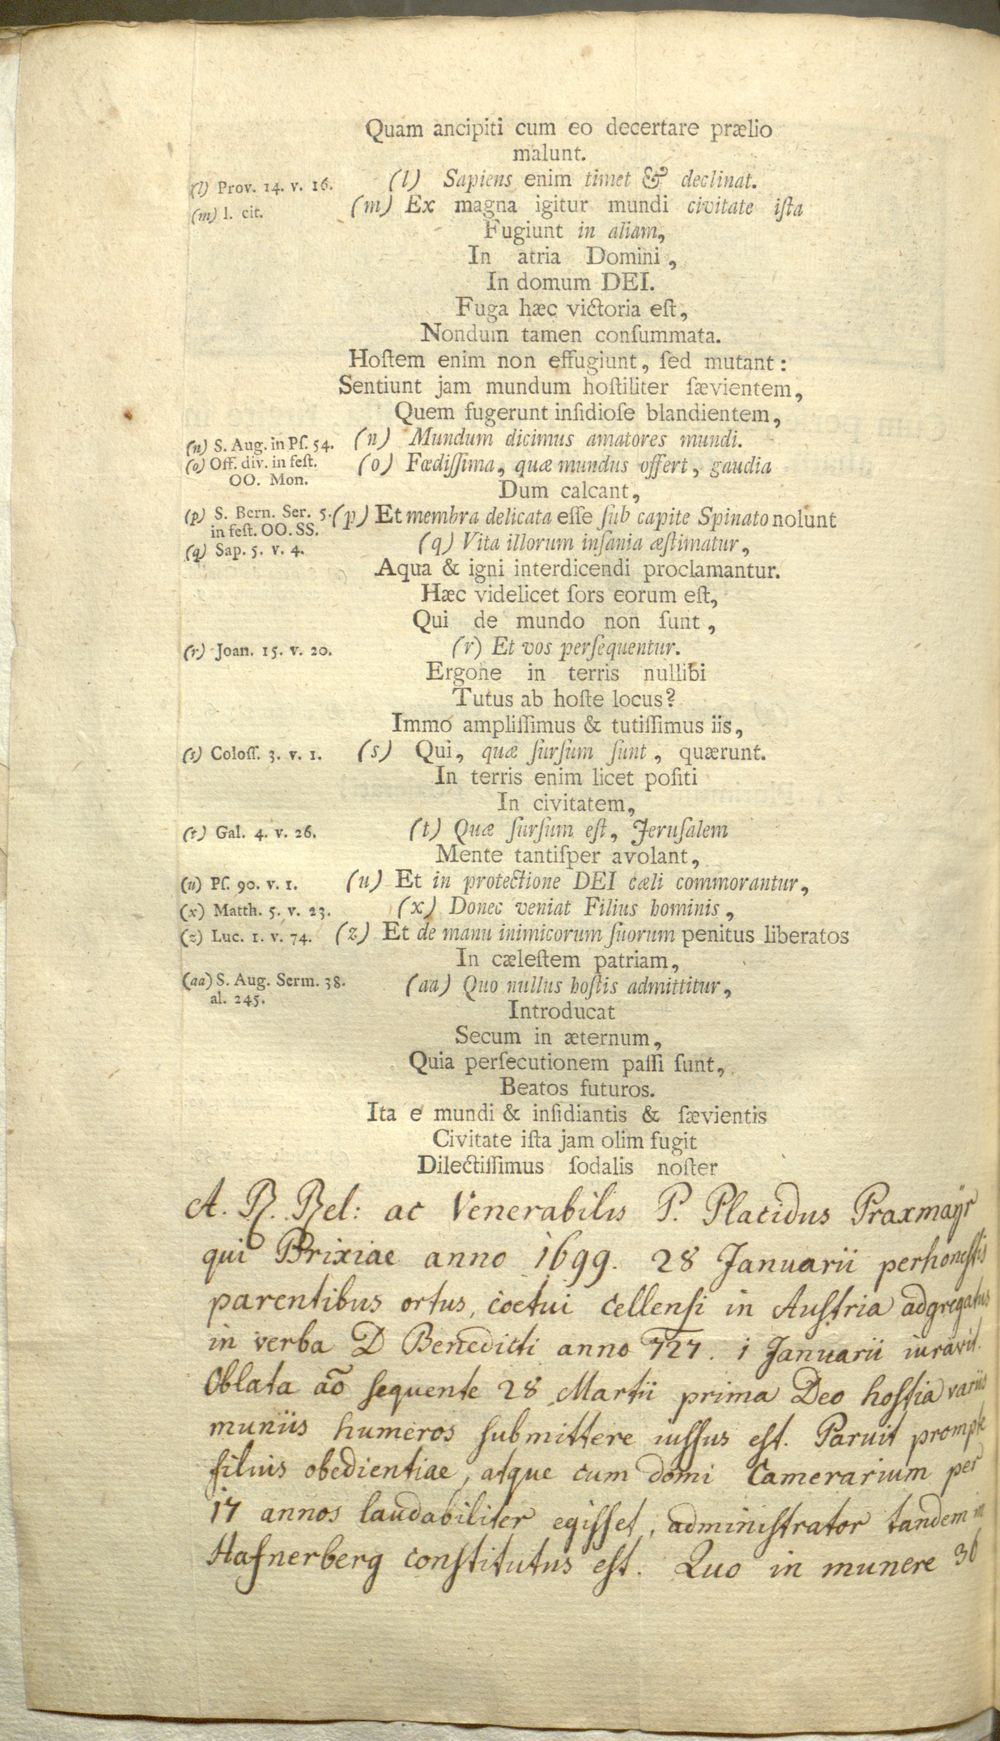 Quam ancipiti cum eo decertare prælio
malunt.
(l) Prov. 14. v. 16. (l) Sapiens enim timet & declinat.
(m) l. cit. (m) Ex magna igitur mundi civitate iſta
Fugiunt in aliam,
In atria Domini,
In domum DEI.
Fuga hæc victoria eſt,
Nondum tamen conſummata.
Hoſtem enim non effugiunt, ſed mutant:
Sentiunt jam mundum hoſtiliter ſævientem,
Quem fugerunt inſidioſe blandientem,
(n) S. Aug. in Pſ. 54. (n) Mundum dicimus amatores mundi.
(o) Off. div. in feſt. (o) Fœdiſſima, quæ mundus offert, gaudia
OO. Mon.
Dum calcant,
(p) S. Bern. Ser. 5. (p) Et membra delicata eſſe ſub capite Spinato nolunt
in feſt. OO. SS.
(q) Sap. 5. v. 4. (q) Vita illorum inſania æſtimatur,
Aqua & igni interdicendi proclamantur.
Hæc videlicet ſors eorum eſt,
Qui de mundo non ſunt,
(r) Joan. 15. v. 20. (r) Et vos perſequentur.
Ergone in terris nullibi
Tutus ab hoſte locus?
Immo ampliſſimus & tutiſſimus iis,
(s) Coloſſ. 3. v. 1. (s) Qui, quæ ſurſum ſunt, quærunt.
In terris enim licet poſiti
In civitatem,
(t) Gal. 4. v. 26. (t) Quæ ſurſum eſt, Jeruſalem
Mente tantiſper avolant,
(u) Pſ. 90. v. 1. (u) Et in protectione DEI cæli commorantur,
(x) Matth. 5. v. 23. (x) Donec veniat Filius hominis,
(z) Luc. 1. v. 74. (z) Et de manu inimicorum ſuorum penitus liberatos
In cæleſtem patriam,
(aa) S. Aug. Serm. 38. (aa) Quo nullus hoſtis admittitur,
al. 245.
Introducat
Secum in æternum,
Quia perſecutionem paſſi ſunt,
Beatos futuros.
Ita e mundi & inſidiantis & ſævientis
Civitate iſta jam olim fugit
Dilectiſſimus ſodalis noſter
A. R. Rel: ac Venerabilis P. Placidus Praxmaÿr
qui Brixiae anno 1699. 28 Januarii perhonestis
parentibus ortus, coetui cellensi in Austria adgregatus
in verba D Benedicti anno 727. 1 Januarii iuravit.
Oblata aõ sequente 28 Martii prima Deo hostia variis
muniis humeros submittere iussus est. Paruit prompte
filius obedientiae, atque cum domi Camerarium per
17 annos laudabiliter egisset, administrator tandem in
Hafnerberg constitutus est. Quo in munere 36